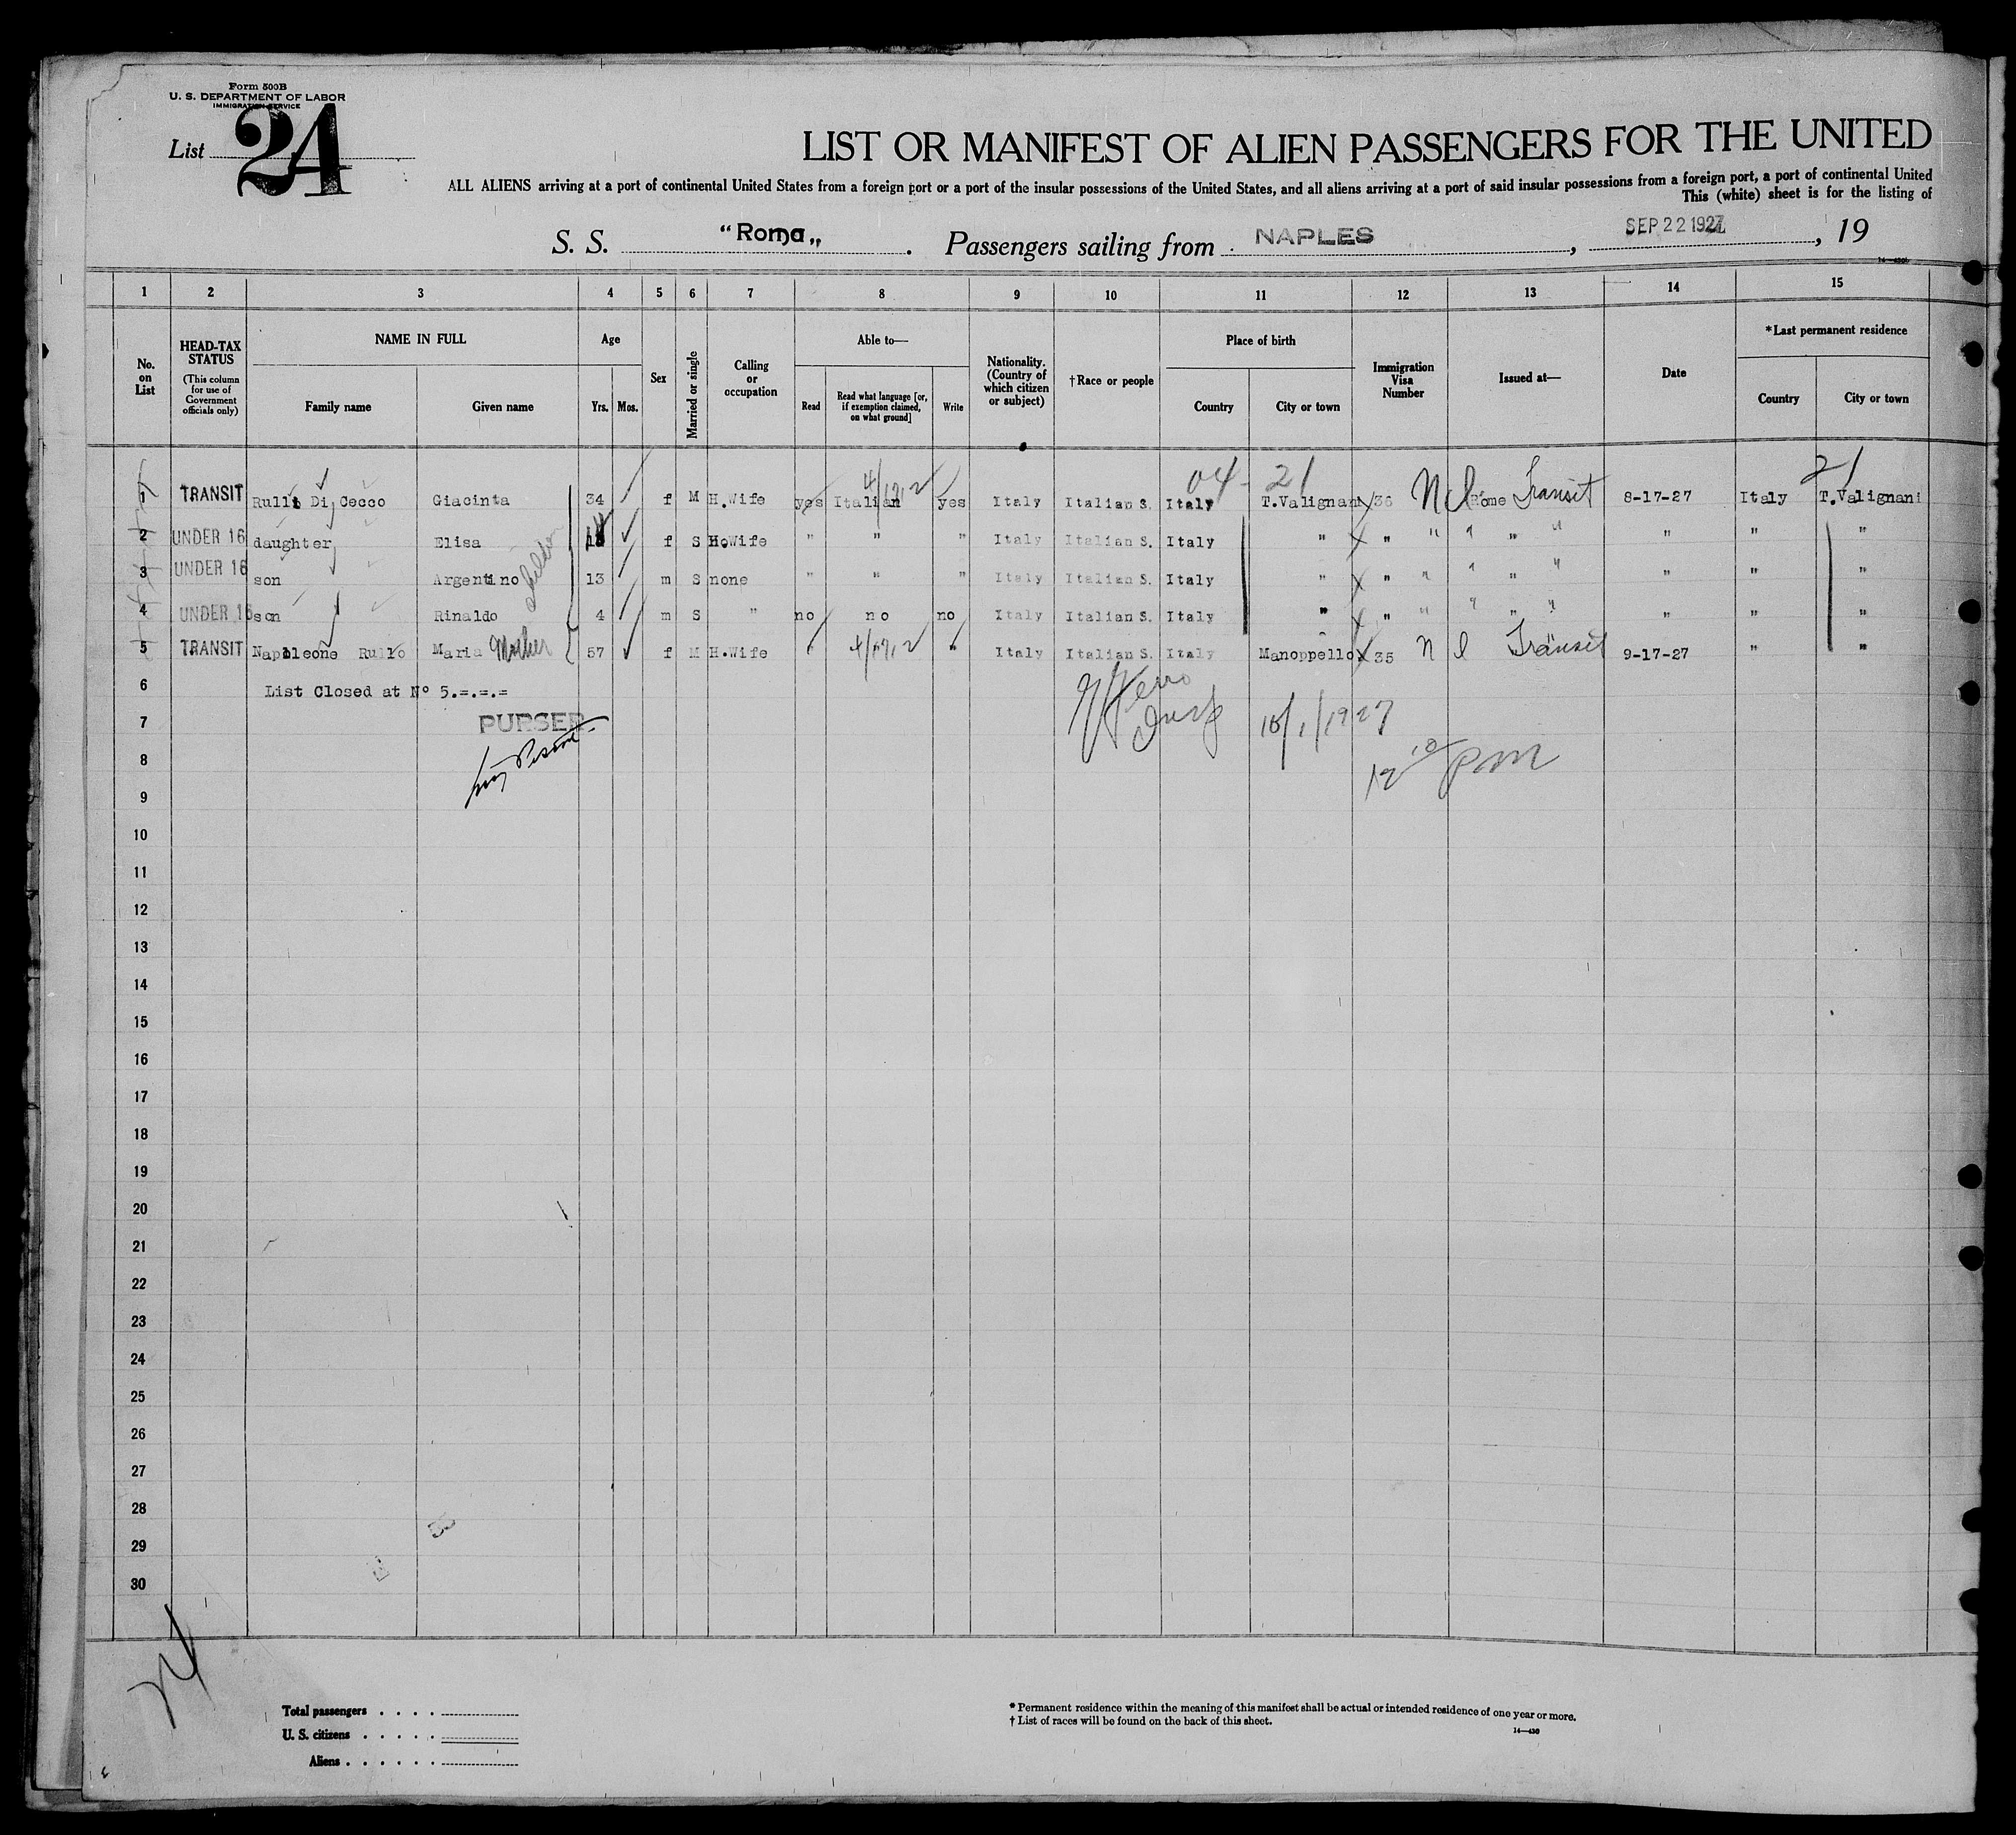 Form 500B
U. S. DEPARTMENT OF LABOR
IMMIGRATION SERVICE
List 24
LIST OR MANIFEST OF ALIEN PASSENGERS FOR THE UNITED
ALL ALIENS arriving at a port of continental United States from a foreign port or a port of the insular possessions of the United States, and all aliens arriving at a port of said insular possessions from a foreign port, a port of continental United
This (white) sheet is for the listing of
S. S. "Roma„ . Passengers sailing from NAPLES , SEP 22 1927 , 19
14—430
1 2 3 4 5 6 7 8 9 10 11 12 13 14 15
No. on List
HEAD-TAX STATUS
(This column for use of Government officials only)
NAME IN FULL
Family name Given name
Age
Yrs. Mos.
Sex
Married or single
Calling or occupation
Able to—
Read
Read what language [or, if exemption claimed, on what ground]
Write
Nationality. (Country of which citizen or subject)
†Race or people
Place of birth
Country City or town
Immigration Visa Number
Issued at—
Date
*Last permanent residence
Country City or town
4/17,2 04 - 21 21
1 TRANSIT Rullo Di Cecco Giacinta 34 f M H.Wife yes Italian yes Italy Italian S. Italy T.Valignani 36 Rome Transit 8-17-27 Italy T.Valignani
2 UNDER 16 daughter Elisa f S Ho Wife " " " Italy Italian S. Italy " " " " " " " " "
3 UNDER 16 son Argentino 13 m S none " " " Italy Italian S. Italy " " " " " " " " "
4 UNDER 16 son Rinaldo 4 m S " no no no Italy Italian S. Italy " " " " " " " " "
children
5 TRANSIT Napoleone Rullo Maria Mother 57 f M H.Wife " 4/17,2 " Italy Italian S. Italy Manoppello 35 Transit 9-17-27 " "
6 List Closed at N° 5.=.=.=
7 PURSER
10/1/1927
8
12 10 PM
9
10
11
12
13
14
15
16
17
18
19
20
21
22
23
24
25
26
27
28
29
30
24
Total passengers . . . .
U. S. citizens . . . . .
Aliens . . . . . .
* Permanent residence within the meaning of this manifest shall be actual or intended residence of one year or more.
† List of races will be found on the back of this sheet.
14—430